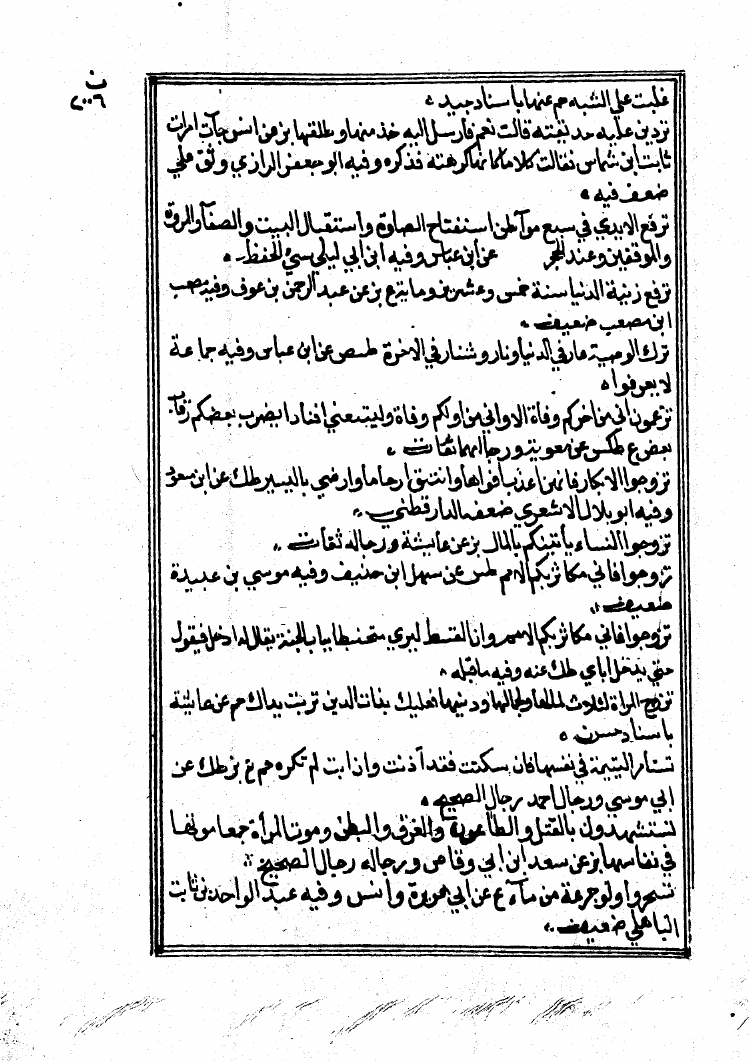 ن
٢٠٠٦
غلبت على الشبه حم عنها باسناد جيد
تردين عليه حديقته قالت نعم فارسل اليه خذ منها وطلقها بز عن انس جآت امرات
ثابت ابن شماس فقالت كلاما كانها كرهته فذكره وفيه ابو جعفر الرازي وثق على
ضعف فيه
ترفع الايدي في سبع مواطن استفتاح الصلوة واستقبال البيت والصفا والمروة
والموقفين وعند الحجر عن ابن عباس وفيه ابن ابي ليلى سيئ الحفظ
ترفع زينة الدنيا سنة خمس وعشرين وما ية ع بز عن عبد الرحمن بن عوف وفيه مصعب
ابن مصعب ضعيف
ترك الوصية عار في الدنيا ونار وشنار في الاخرة طس ص عن ابن عباس وفيه جماعة
لا يعرفوا
تزعمون اني من اخركم وفاة الا واني من اولكم وفاة وليتبعني افنادا يضرب بعضكم رقاب
بعض ع طكس عن معوية ورجالهما ثقات
تزوجوا الابكار فانهن اعذب افواها وانتق ارحاما وارضي باليسير طك عن ابن مسعود
وفيه ابو بلال الاشعري ضعفه الدارقطني
تزوجوا النساء ياتينكم بالمال بز عن عايشة ورجاله ثقات
تزوجوا فاني مكاثر بكم الامم طس عن سهل ابن حنيف وفيه موسي بن عبيدة
ضعيف
تزوجوا فاني مكاثر بكم الامم وان القسط ليري محبنطيا بباب الجنة يقال له ادخل فيقول
حتي يدخل اباي طك عنه وفيه ما قبله
تزوج المراة لثلاث لمالها ولجمالها ودينها فعليك بذات الدين تربت يداك حم عن عايشة
باسناد حسن
تستامر اليتيمة في نفسها فان سكتت فقد آذنت وان ابت لم تكره حم ع بز طك عن
ابي موسي ورجال احمد رجال الصحيح
تستشهدون بالقتل والطاعون والغرق والبطن وموت المرأة جمعا موتها
في نفاسها بز عن سعد ابن ابي وقاص ورجاله رجال الصحيح
تسحروا ولو جرعة من مآء ع عن ابي هريرة وانس وفيه عبد الواحد بن ثابت
الباهلي ضعيف